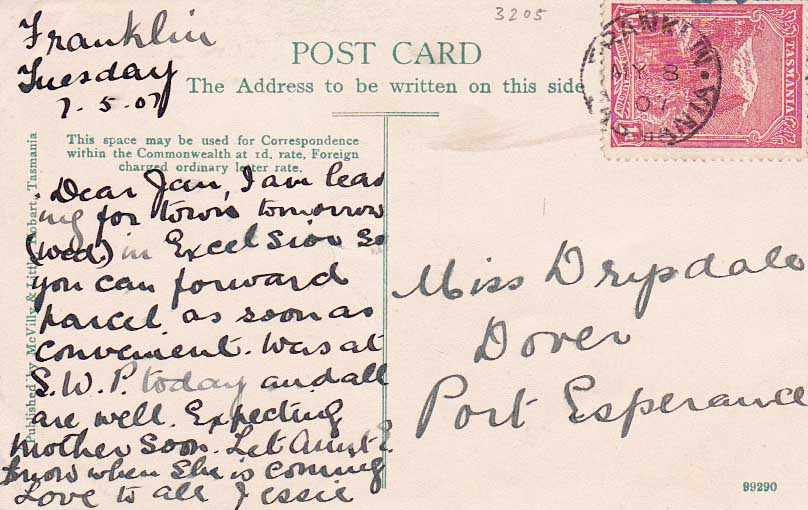 3205
Franklin
Tuesday
7.5.07
POST CARD
The Address to be written on this side
FRANKLIN
MY 8
07
TASMANIA
TASMANIA
This space may be used for Correspondence
within the Commonwealth at 1d. rate, Foreign
charged ordinary letter rate.
Dear Jan, I am leav
ing for town tomorrow
(Wed.) in Excelsior so
you can forward
parcel as soon as
convenient. Was at
S.W.P. today and all
are well. Expecting
Mother soon. Let Aunt E
know when she is coming
Love to all Jessie
Miss Drysdale
Dover
Port Esperance
Published by McVilly & Little, Hobart, Tasmania
99290